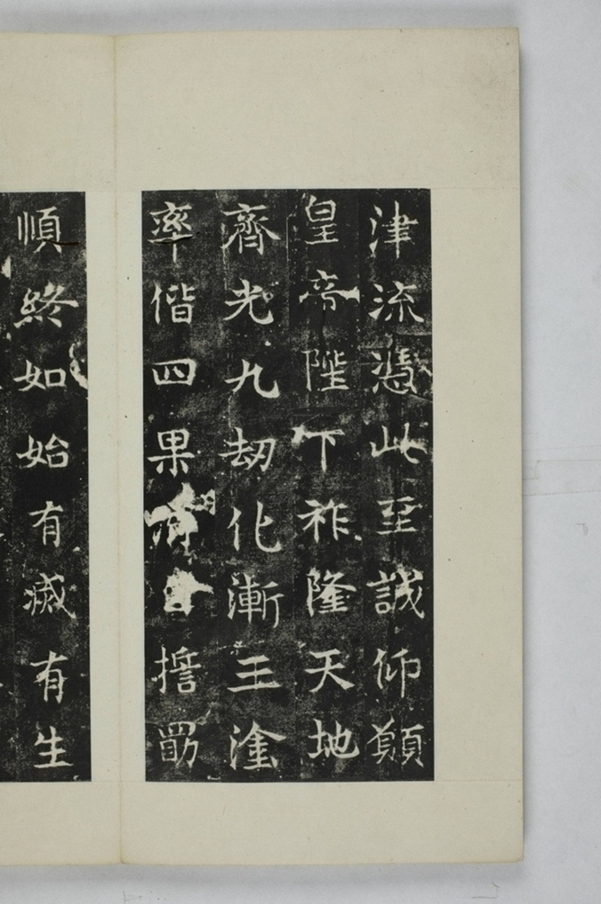 津流憑此至誠仰願
皇帝陛下祚隆天地
齊光九劫化漸塗
率偕四果
慎終如始有滅有生